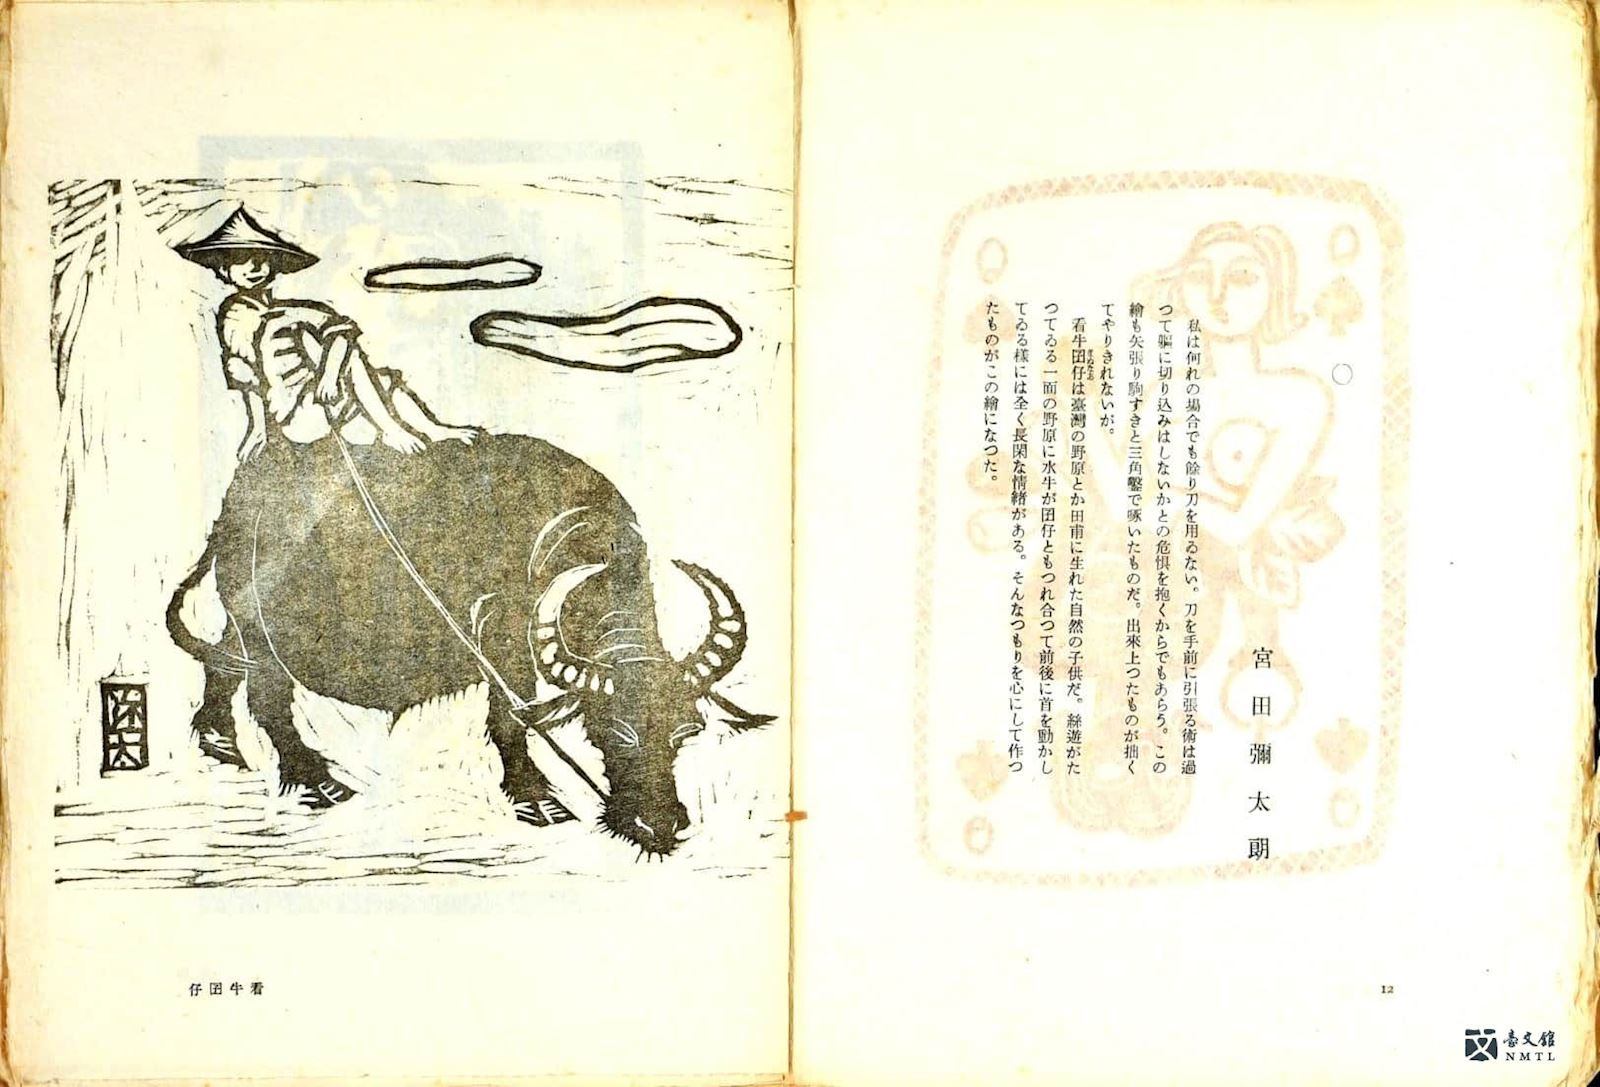 宮田彌太朗
私は何れの場合でも餘り刀を用ゐない。刀を手前に引張る術は過
つて軀に切り込みはしないかとの危惧を抱くからでもあらう。この
繪も矢張り駒すきと三角鑿で啄いたものだ。出來上つたものが拙く
てやりきれないが。
看牛囝仔は臺灣の野原とか田甫に生れた自然の子供だ。絲遊がた
つてゐる一面の野原に水牛が囝仔ともつれ合つて前後に首を動かし
てゐる樣には全く長閑な情緖がある。そんなつもりを心にして作つ
たものがこの繪になつた。
12
看牛囝仔
臺文館
NMTL